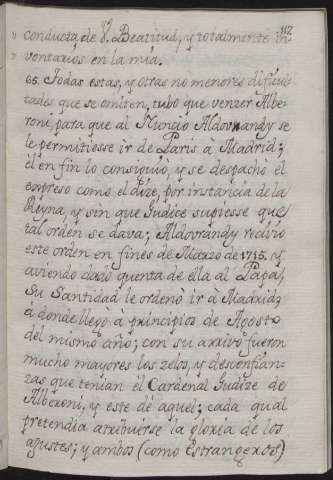 112
conducta de V. Beatitud, y totalmente in
vontarios en la mia.
65. Todas estas, y otras no menores dificul
tades que se omiten, tubo que venzer Albe
roni, para que al Nuncio Aldovrandy se
le permitiesse ir de Paris à Madrid;
èl en fin lo consiguiò, y se despachò el
expreso como el dize, por instancia de la
Reyna, y sin que Iudice supiesse que
tal orden se dava; Aldovrandy reciviò
este orden en fines de Marzo de 1715. y
aviendo dado quenta de ella al Papa,
Su Santidad le ordenò ir à Madrid;
à donde llegò à principios de Agosto
del mismo año; con su arrivo fueron
mucho mayores los zelos, y desconfian-
zas que tenian el Cardenal Iudize de
Alberoni, y este de aquel; cada qual
pretendia atribuirse la gloria de los
ajustes; y ambos (como Estrangeros)